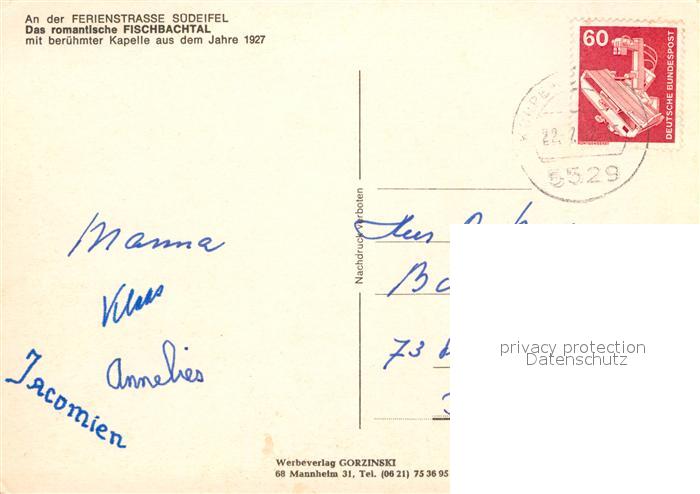 An der FERIENSTRASSE SÜDEIFEL
Das romantische FISCHBACHTAL
mit berühmter Kapelle aus dem Jahre 1927
60
DEUTSCHE BUNDESPOST
RÖNTGENGERÄT
22.
5529
Nachdruck verboten
Manna
Klaas
Annelies
Jacomien
73
privacy protection
Datenschutz
Werbeverlag GORZINSKI
68 Mannheim 31, Tel. (06 21) 75 36 95